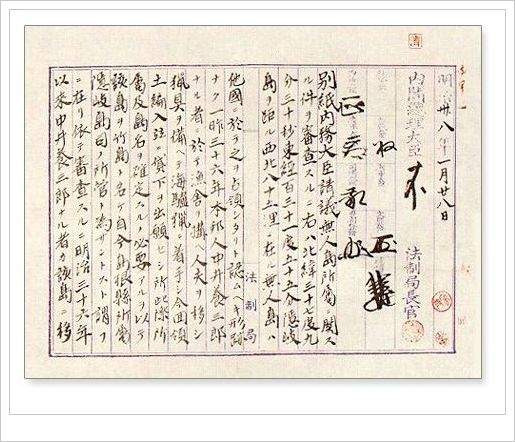 明治卅八年一月廿八日
内閣總理大臣
法制局長官
別紙内務大臣請議無人島所属ニ関ス
ル件ヲ審査スルニ右ハ北緯三十七度九
分三十秒東経百三十一度五十五分隠岐
島ヲ距ル西北八十五浬ニ在ル無人島ハ
法制局
他國ニ於テ之ヲ占領シタリト認ムヘキ形跡
ナク一昨三十六年本邦人中井養三郎
ナル者ニ於テ漁舎ヲ構ヘ人夫ヲ移シ
猟具ヲ備ヘテ海驢猟ニ着手シ今回領
土編入並ニ貸下ヲ出願セシ所此際所
属及島名ヲ確定スルノ必要アルヲ以テ
該島ヲ竹島ト名ケ自今島根縣所属
隠岐島司ノ所管ト為サントスト謂フ
ニ在リ依テ審査スルニ明治三十六年
以来中井養三郎ナル者該島ニ移